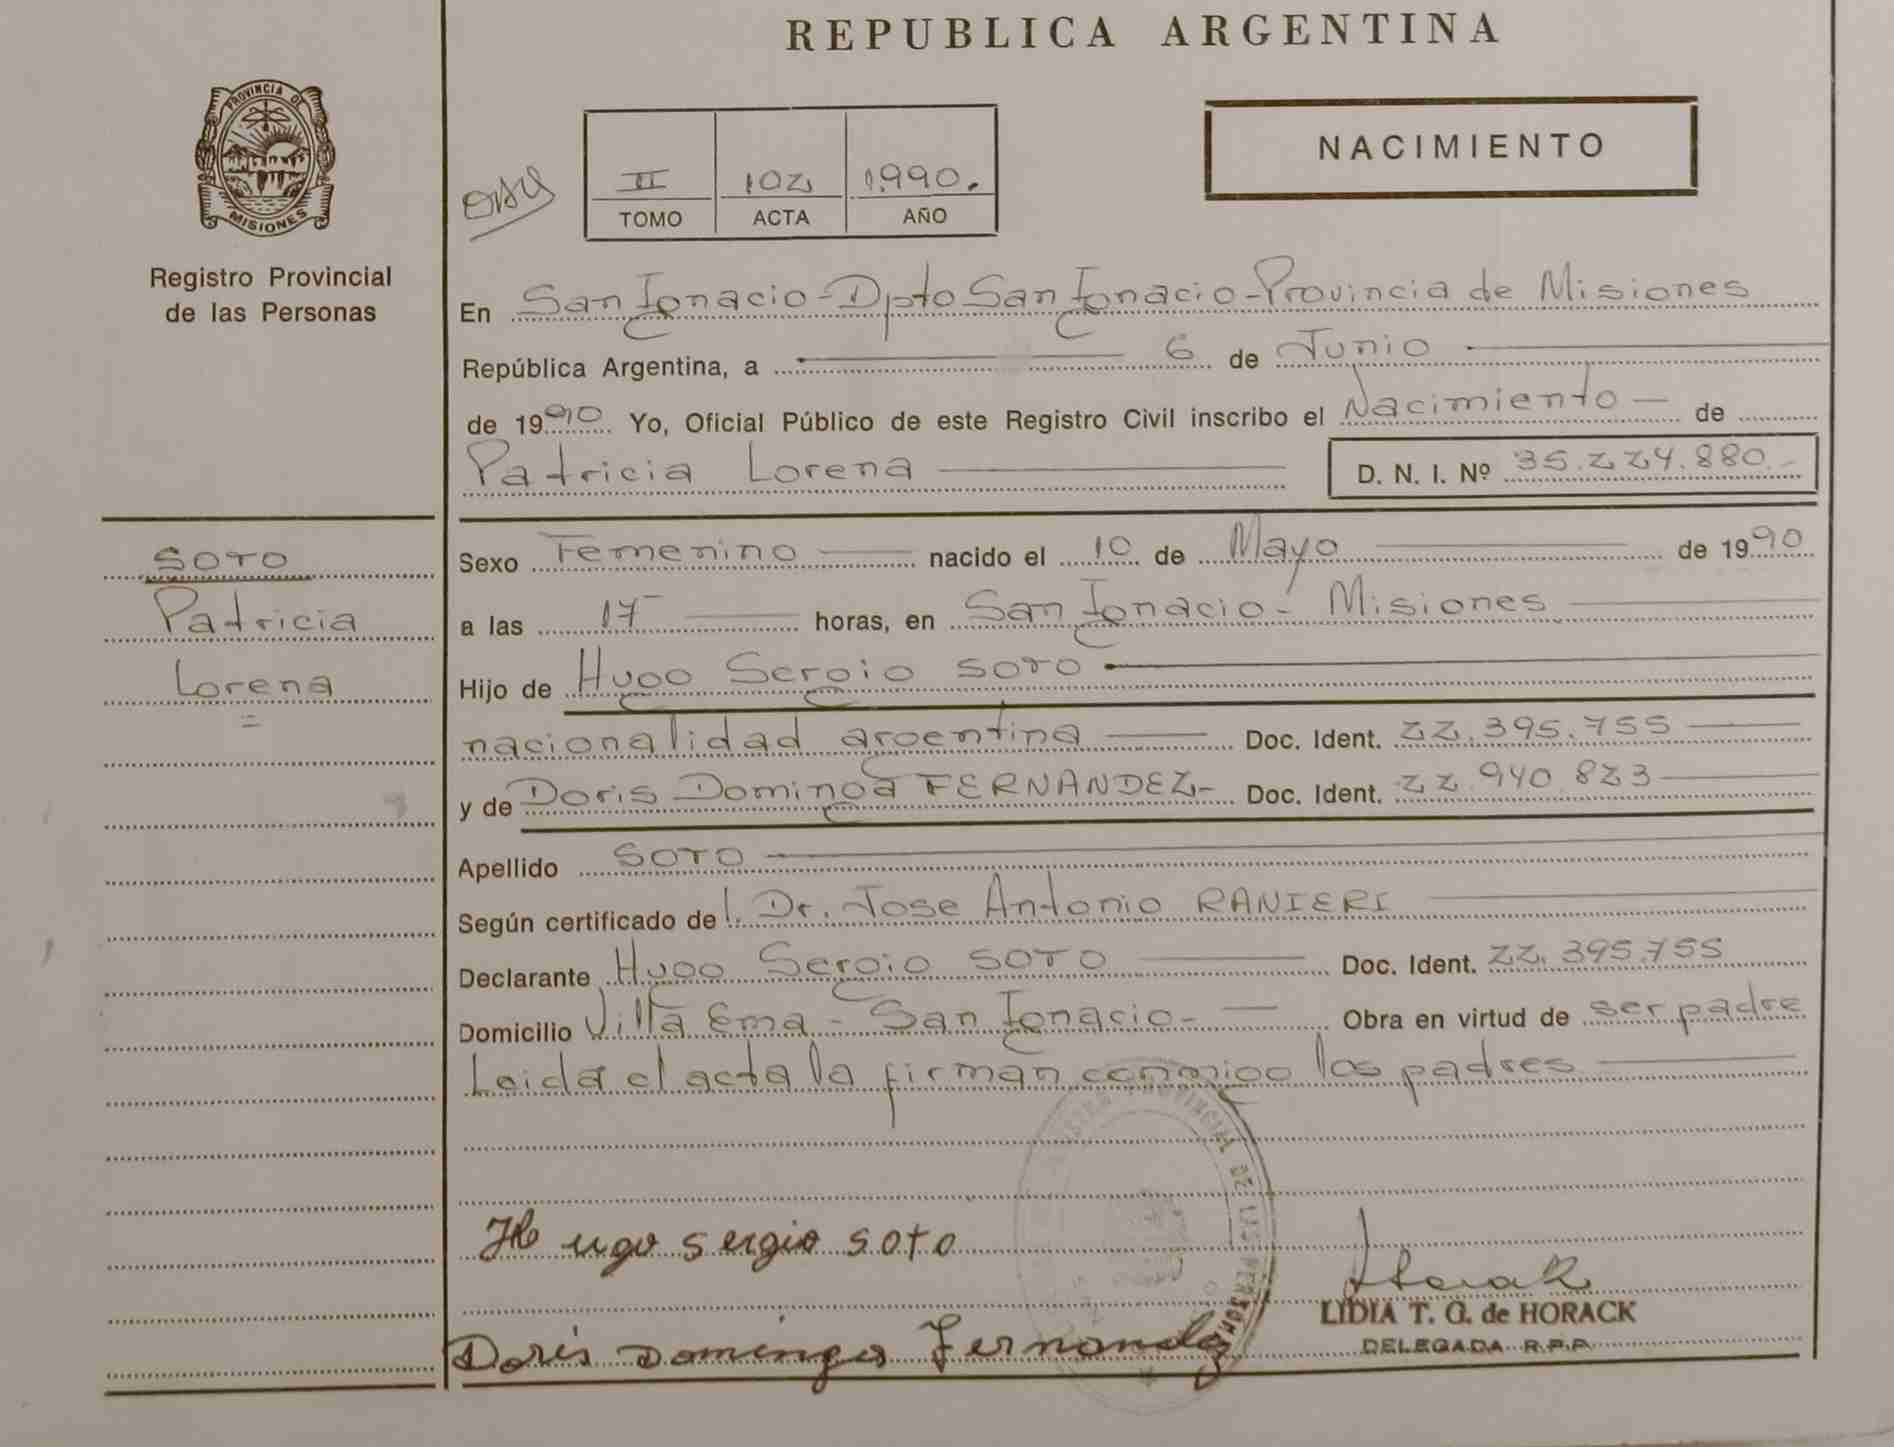 REPUBLICA ARGENTINA
PROVINCIA DE
MISIONES
Registro Provincial
de las Personas
NACIMIENTO
II 102 1990.
TOMO ACTA AÑO
En San Ignacio - Dpto San Ignacio - Provincia de Misiones
República Argentina, a 6 de Junio
de 1990 Yo, Oficial Público de este Registro Civil inscribo el Nacimiento - de
Patricia Lorena D. N. I. Nº 35.224.880.-
SOTO
Patricia
Lorena
Sexo Femenino nacido el 10 de Mayo de 1990
a las 17 horas, en San Ignacio - Misiones
Hijo de Hugo Sergio SOTO
nacionalidad argentina Doc. Ident. 22.395.755
y de Doris Dominga FERNANDEZ- Doc. Ident. 22.940.823
Apellido SOTO
Según certificado de l. Dr. Jose Antonio RANIERI
Declarante Hugo Sergio SOTO Doc. Ident. 22.395.755
Domicilio Villa Ema - San Ignacio - Obra en virtud de ser padre
Leida el acta la firman conmigo los padres
PROVINCIAL DE LAS PERSONAS
Hugo sergio soto
LIDIA T. G. de HORACK
DELEGADA R.P.P.
Doris Dominga Fernandez